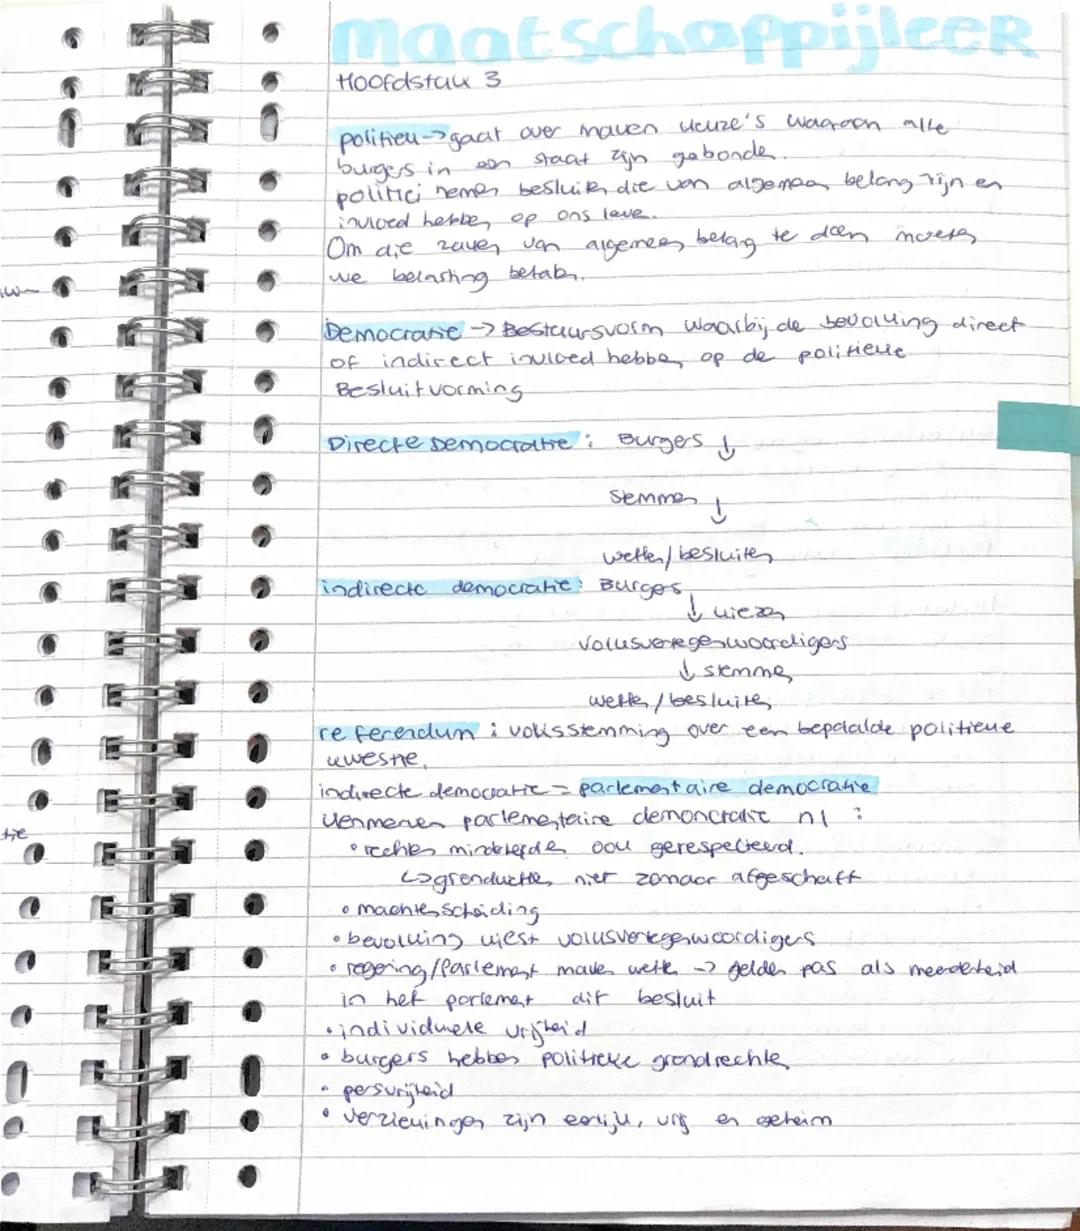 maatschappijleer
Hoofdstuk 3
politiek -> gaat over maken keuze's waaraan alle
burgers in een staat zijn gebonde.
politici nemen besluiten die van algemeen belang zijn en
invloed hebben op ons leve.
Om die zaken van algemeen belang te doen moeten
we belasting betalen.
Democratie -> Bestuursvorm waarbij de bevolking direct
of indirect invloed hebben op de politieke
Besluitvorming
Directe Democratie : Burgers ↓
stemmen ↓
wetten/besluiten
indirecte democratie: Burgers
↓ kiezen
volksvertegenwoordigers
↓ stemmen
wetten/besluiten
referendum : volksstemming over een bepaalde politieke
kwestie.
indirecte democratie = parlementaire democratie
kenmerken parlementaire democratie nl :
• rechten minderheden ook gerespecteerd.
↳ grondwetten niet zomaar afgeschaft
• machtenscheiding
• bevolking kiest volksvertegenwoordigers
• regering/Parlement maken wetten -> gelden pas als meerderheid
in het parlement dit besluit
• individuele vrijheid
• burgers hebben politieke grondrechten
• persvrijheid
• verkiezingen zijn eerlijk, vrij en geheim
tie